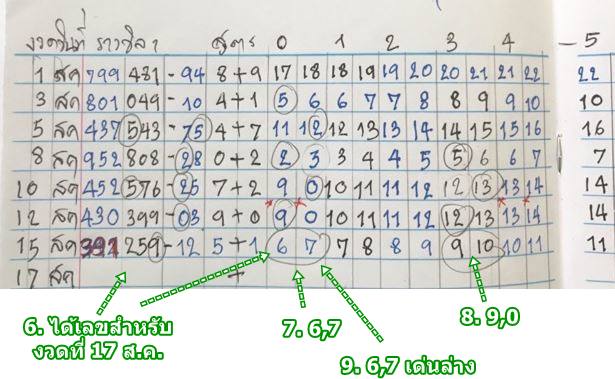 งวดวันที่ ราวซิลา สูตร 0 1 2 3 4 - 5
1 สค 799 481 - 94 8+9 17 18 18 19 19 20 20 21 21 22 22
3 สค 801 049 - 10 4+1 5 6 6 7 7 8 8 9 9 10 10
5 สค 437 543 - 75 4+7 11 12 12 13 13 14 14 15 15 16 16
8 สค 952 808 - 28 0+2 2 3 3 4 4 5 5 6 6 7 7
10 สค 452 576 - 25 7+2 9 0 10 11 11 12 12 13 13 14 14
12 สค 430 399 - 03 9+0 9 0 10 11 11 12 12 13 13 14 14
15 สค 259 - 12 5+1 6 7 7 8 8 9 9 10 10 11 11
17 สค +
6. ได้เลขสำหรับ
งวดที่ 17 ส.ค.
7. 6,7
8. 9,0
9. 6,7 เด่นล่าง